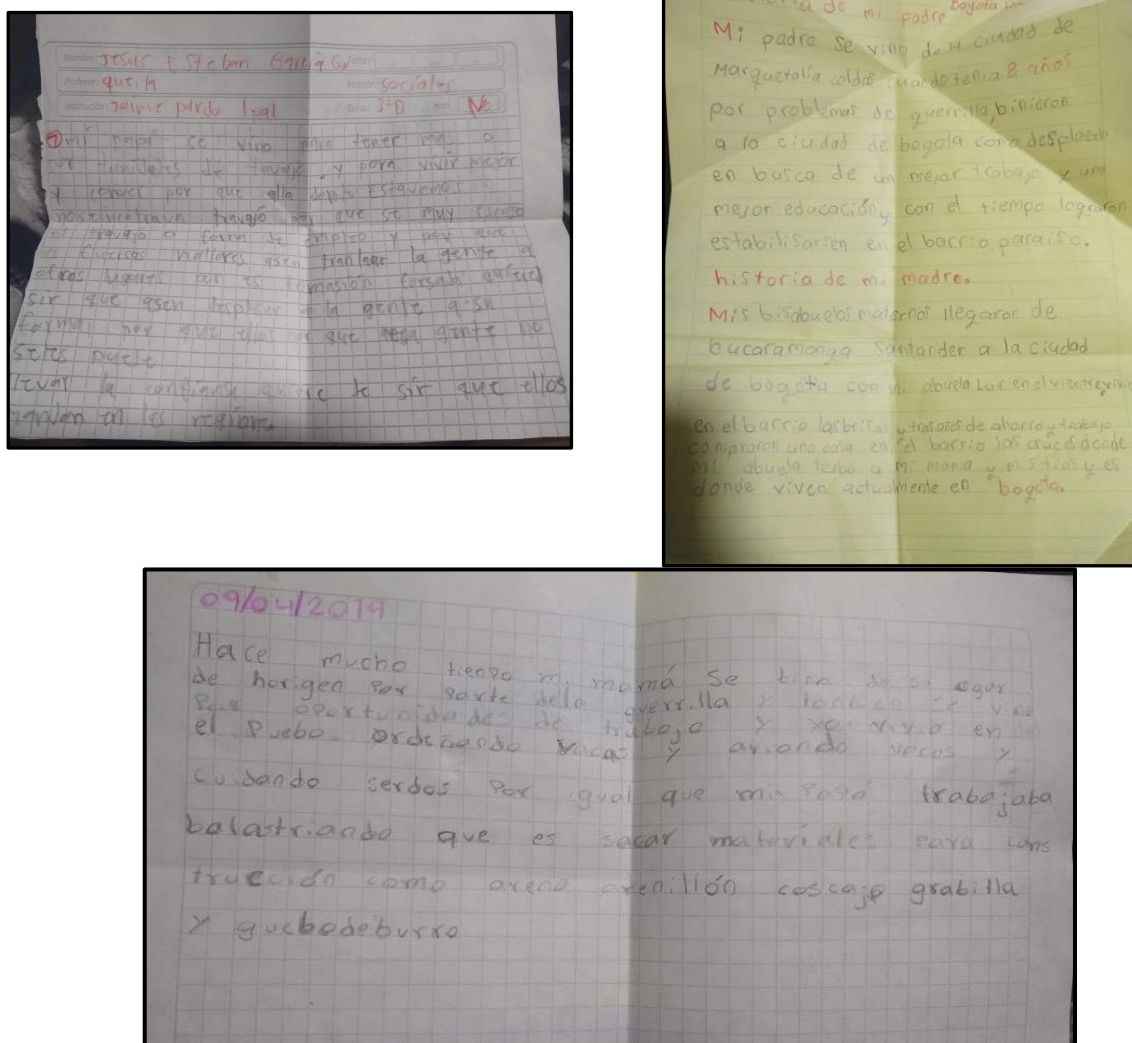 Nombre: Jesus Esteban Garcia S. Fecha:
Profesor: queila Materia: Sociales
Institución: Jaime pardo leal Curso: No
① mi papa se vino para tener mas o
y para vivir mejor
y por que alla donde Estavamos
travajo por que se muy escaso
el travajo o forma de empleo y por que
la gente a
otras lugares
sir que asen desplasar a la gente a su
forma por que ellos que gente no
seles puede
levar la confiansa quiere de sir que ellos
mandan en las
de mi padre Bogota
Mi padre se vino de la ciudad de
Marquetalia caldas cuando tenia 8 años
por problemas de guerrilla, binieron
a la ciudad de bogota como desplazado
en busca de un mejor trabajo y una
mejor educación, con el tiempo lograron
establisarsen en el barrio paraiso.
historia de mi madre.
Mis bisabuelos maternos llegaron de
bucaramanga Santander a la ciudad
de bogota con mi abuela Luz en el vientre
en el barrio las brisas y tras años de ahorro y trabajo
compraron una casa en el barrio las cruces donde
mi abuela tubo a mi mama y mis tios y es
donde viven actualmente en bogota.
09/04/2019
Hace mucho tienpo mi mamá se bino de su ogar
de horigen por parte dela guerrilla y tanbien se vino
por oportunidades de trabajo y vivio en
el puebo ordeñando vacas y ariando vacas y
cuidando serdos por igual que mi papá trabajaba
balastriando que es sacar materiales para cons
trucción como arena arenillón coscajo grabilla
y guebodeburro